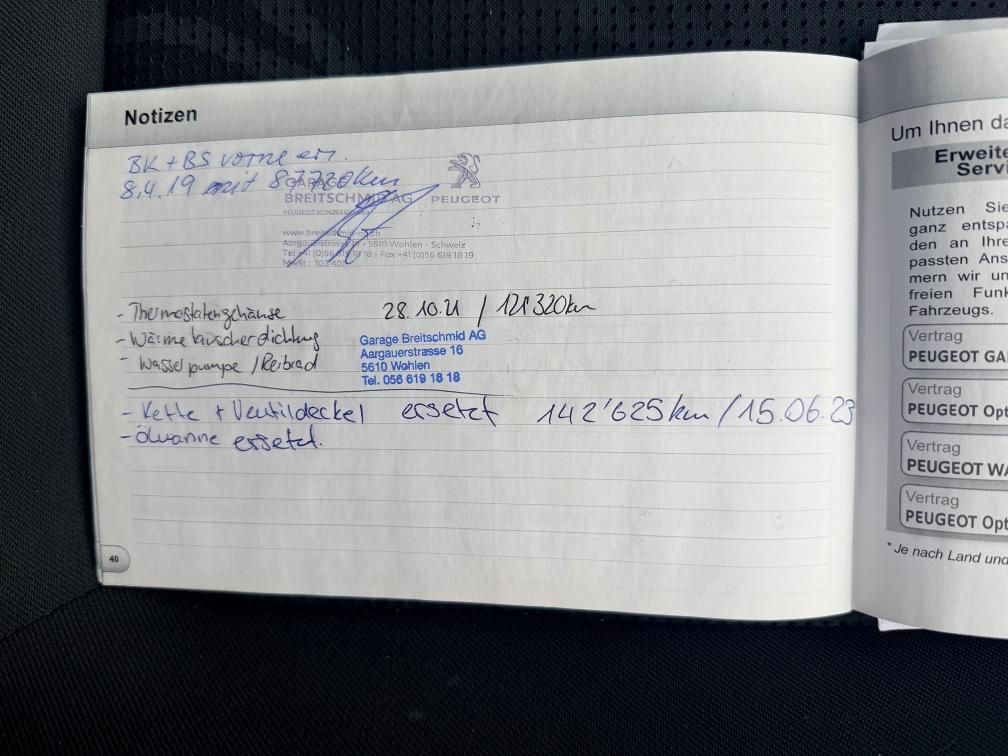 Notizen
BK + BS vorne ern.
8.4.19 mit 87720km
GARAGE
BREITSCHMID AG PEUGEOT
PEUGEOT KONZESSIONÄR
www.breitschmid-ag.ch
Aargauerstrasse 16 - 5610 Wohlen - Schweiz
Tel +41 (0)56 619 18 18 - Fax +41 (0)56 619 18 19
MwSt:
- Thermostatengehäuse 28.10.21 / 121'320km
- Wärmetauscherdichtung
- Wasserpumpe / Reibrad
Garage Breitschmid AG
Aargauerstrasse 16
5610 Wohlen
Tel. 056 619 18 18
- Kette + Ventildeckel ersetzt 142'625km / 15.06.23
- Ölwanne ersetzt.
40
Um Ihnen da
Erweite
Servi
Nutzen Sie
ganz entspa
den an Ihre
passten Ans
mern wir un
freien Funk
Fahrzeugs.
Vertrag
PEUGEOT GA
Vertrag
PEUGEOT Opt
Vertrag
PEUGEOT WA
Vertrag
PEUGEOT Opt
* Je nach Land und